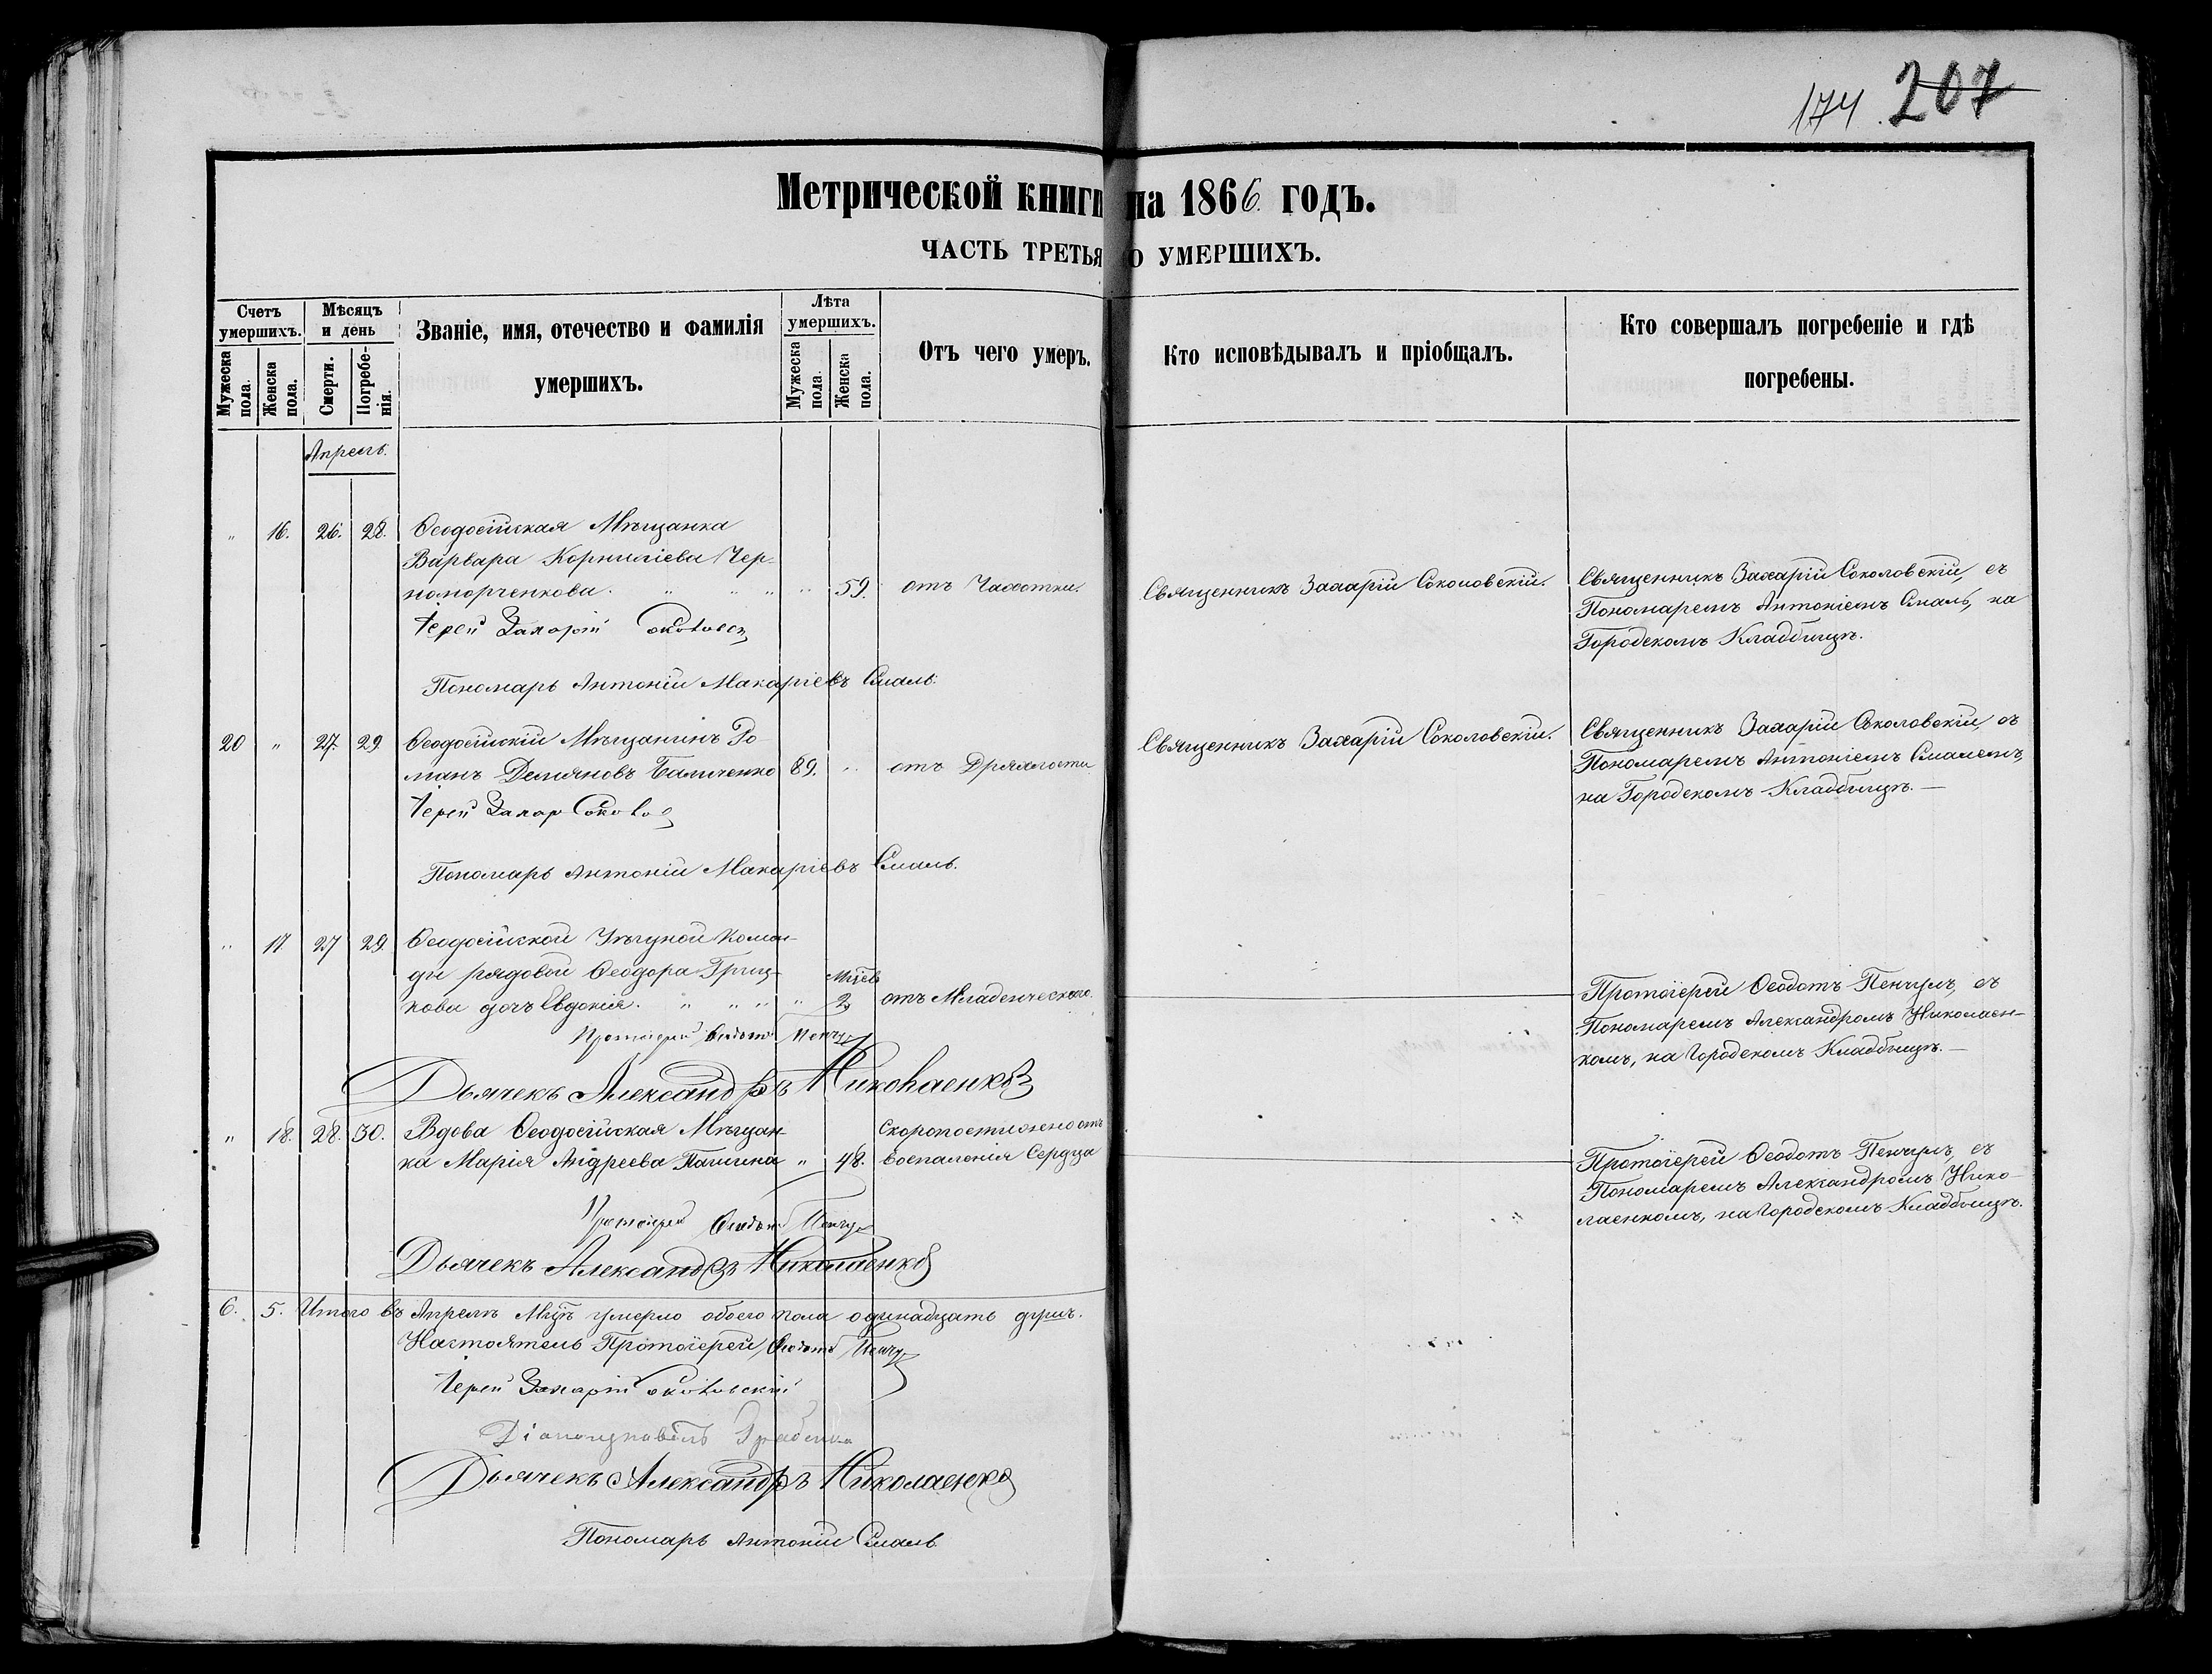 174. 207
Метрической книги на 1866 годъ.
ЧАСТЬ ТРЕТЬЯ О УМЕРШИХЪ.
Счетъ умершихъ.
Мужеска пола.
Женска пола.
Мѣсяцъ и день
Смерти.
Погребенія.
Званіе, имя, отечество и фамилія
умершихъ.
Лѣта умершихъ.
Мужеска пола.
Женска пола.
Отъ чего умеръ.
Кто исповѣдывалъ и пріобщалъ.
Кто совершалъ погребеніе и гдѣ
погребены.
Апрель.
" 16. 26. 28. Ѳеодосійская Мѣщанка
Варвара Корниліева Чер-
номорченкова. " " " " 59. отъ Чахотки. Священникъ Захарій Соколовскій.
Священникъ Захарій Соколовскій, съ
Пономаремъ Антоніемъ Смаль, на
Городскомъ Кладбищѣ.
Іерей Захарій Соколовск
Пономарь Антоній Макаріевъ Смаль.
20 " 27. 29. Ѳеодосійскій Мѣщанинъ Ро-
манъ Демяновъ 89. " отъ Дряхлости Священникъ Захарій Соколовскій.
Священникъ Захарій Соколовскій, съ
Пономаремъ Антоніемъ Смалемъ,
на Городскомъ Кладбищѣ. —
Іерей Захар Соколов
Пономарь Антоній Макаріевъ Смаль.
" 17. 27 29 Ѳеодосійской Уѣздной Коман-
ды рядового Ѳеодора Гриц-
кова дочь Евдокія. " " " " Мцѣв 2 отъ Младенческаго.
Протоіерей Ѳеодотъ Пенчулъ, съ
Пономаремъ Александромъ Николаен-
комъ, на Городскомъ Кладбищѣ. —
Протоіерей Ѳеодотъ Пенчул
Дьячекъ Александръ Николаенко
" 18. 28. 30. Вдова Ѳеодосійская Мѣщан- Скоропостижно отъ
ка Марія Андреева " 48. воспаленія Сердца
Протоіерей Ѳеодотъ Пенчулъ, съ
Пономаремъ Александромъ Нико-
лаенкомъ, на Городскомъ Кладбищѣ.
Протоіерей Ѳеодотъ Пенчул
Дьячекъ Александръ Николаенко
6. 5. Итого въ Апрелѣ Мцѣ умерло обоего пола одинадцать душъ.
Настоятель Протоіерей, Ѳеодотъ Пенчул
Іерей Захарій Соколовскій
Дьячекъ Александръ Николаенко
Пономарь Антоній Смаль